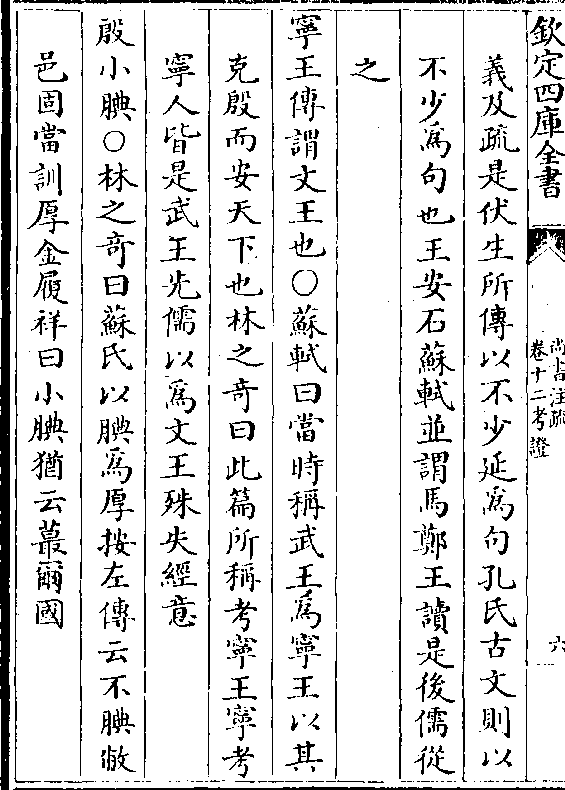 欽定四庫全書
尚書注疏
卷十二考證
六
義及疏是伏生所傳以不少延爲句孔氏古文則以
不少爲句也王安石蘇軾並謂馬鄭王讀是後儒從
之
寧王傳謂文王也○蘇軾曰當時稱武王爲寧王以其
克殷而安天下也林之奇曰此篇所稱考寧王寧考
寧人皆是武王先儒以爲文王殊失經意
殷小腆○林之奇曰蘇氏以腆爲厚按左傳云不腆敝
邑固當訓厚金履祥曰小腆猶云蕞爾國